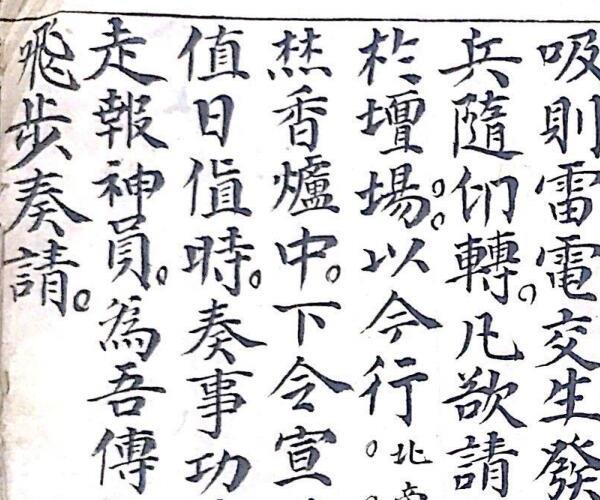 吸則雷電交生發
兵隨印轉。凡欲請
於壇場。以今行。北
焚香爐中。下令宣
值日值時。奏事功
走報神員。為吾傳
飛步奏請。